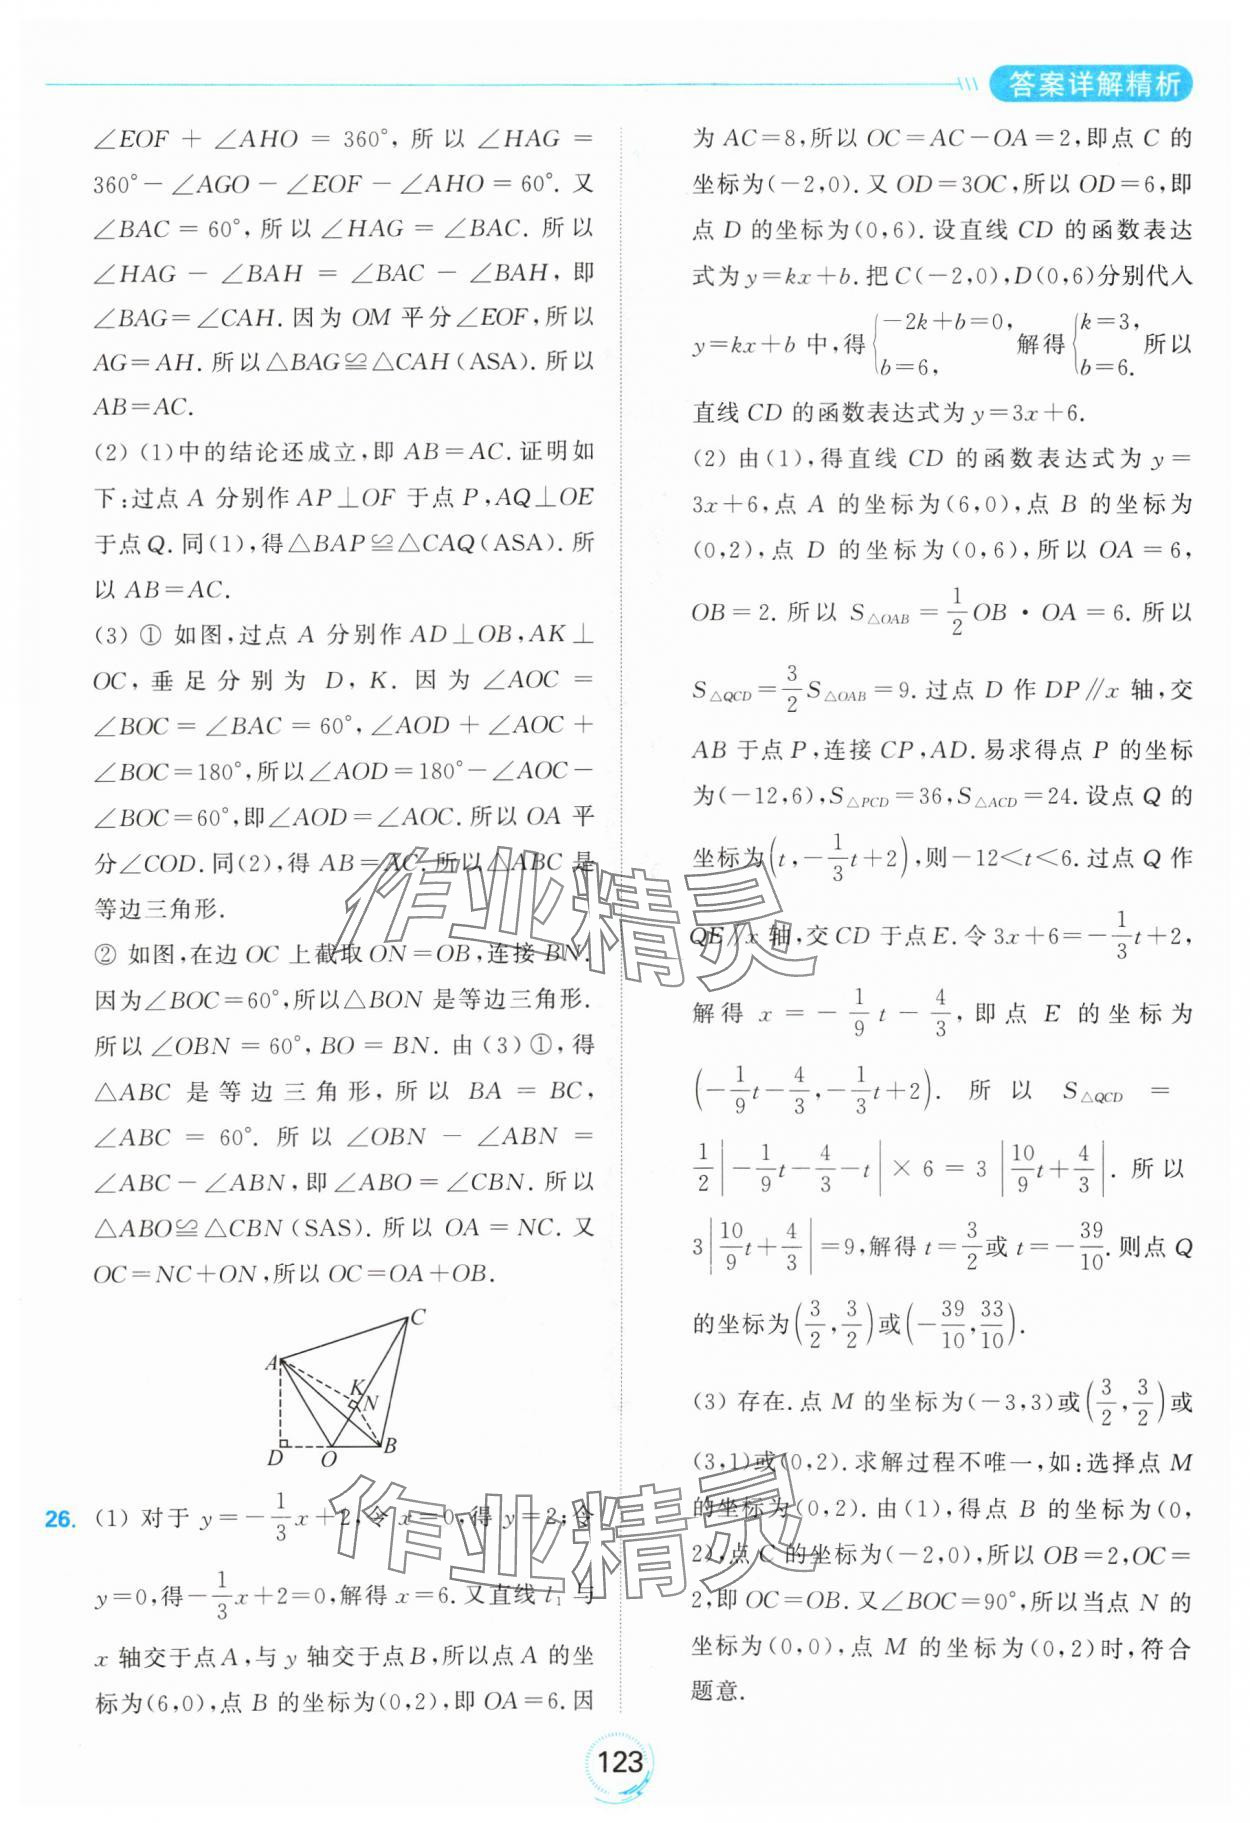 答案详解精析
∠EOF + ∠AHO = 360°, 所以 ∠HAG =
360°-∠AGO-∠EOF-∠AHO=60°. 又
∠BAC=60°, 所以 ∠HAG=∠BAC. 所以
∠HAG - ∠BAH = ∠BAC - ∠BAH, 即
∠BAG=∠CAH. 因为 OM 平分∠EOF, 所以
AG=AH. 所以△BAG≌△CAH(ASA). 所以
AB=AC.
(2) (1)中的结论还成立, 即 AB=AC. 证明如
下: 过点 A 分别作 AP⊥OF 于点 P, AQ⊥OE
于点Q. 同(1), 得△BAP≌△CAQ(ASA). 所
以 AB=AC.
(3) ① 如图, 过点 A 分别作 AD⊥OB, AK⊥
OC, 垂足分别为 D, K. 因为 ∠AOC =
∠BOC=∠BAC=60°, ∠AOD+∠AOC+
∠BOC=180°, 所以∠AOD=180°-∠AOC-
∠BOC=60°, 即∠AOD=∠AOC. 所以 OA 平
分∠COD. 同(2), 得 AB=AC. 所以△ABC 是
等边三角形.
② 如图, 在边 OC 上截取 ON=OB, 连接 BN.
因为∠BOC=60°, 所以△BON 是等边三角形.
所以 ∠OBN=60°, BO=BN. 由(3)①, 得
△ABC 是等边三角形, 所以 BA = BC,
∠ABC = 60°. 所以 ∠OBN - ∠ABN =
∠ABC-∠ABN, 即∠ABO=∠CBN. 所以
△ABO≌△CBN(SAS). 所以 OA=NC. 又
OC=NC+ON, 所以 OC=OA+OB.
C
A
K
N
D O B
26. (1) 对于 y=-1/3x+2, 令 x=0, 得 y=2; 令
y=0, 得-1/3x+2=0, 解得 x=6. 又直线 l₁ 与
x 轴交于点A, 与 y 轴交于点B, 所以点 A 的坐
标为(6,0), 点 B 的坐标为(0,2), 即 OA=6. 因
为 AC=8, 所以 OC=AC-OA=2, 即点 C 的
坐标为(-2,0). 又 OD=3OC, 所以 OD=6, 即
点 D 的坐标为(0,6). 设直线 CD 的函数表达
式为 y=kx+b. 把 C(-2,0), D(0,6)分别代入
y=kx+b 中, 得{-2k+b=0, b=6, 解得{k=3, b=6. 所以
直线 CD 的函数表达式为 y=3x+6.
(2) 由(1), 得直线 CD 的函数表达式为 y=
3x+6, 点 A 的坐标为(6,0), 点 B 的坐标为
(0,2), 点 D 的坐标为(0,6), 所以 OA=6,
OB=2. 所以 S△OAB=1/2OB·OA=6. 所以
S△QCD=3/2S△OAB=9. 过点 D 作 DP∥x 轴, 交
AB 于点 P, 连接 CP, AD. 易求得点 P 的坐标
为(-12,6), S△PCD=36, S△ACD=24. 设点 Q 的
坐标为(t,-1/3t+2), 则-12<t<6. 过点 Q 作
QE∥x 轴, 交 CD 于点 E. 令 3x+6=-1/3t+2,
解得 x=-1/9t-4/3, 即点 E 的坐标为
(-1/9t-4/3,-1/3t+2). 所以 S△QCD =
1/2|-1/9t-4/3-t|×6=3|10/9t+4/3|. 所以
3|10/9t+4/3|=9, 解得 t=3/2或 t=-39/10. 则点 Q
的坐标为(3/2,3/2)或(-39/10,33/10).
(3) 存在. 点 M 的坐标为(-3,3)或(3/2,3/2)或
(3,1)或(0,2). 求解过程不唯一, 如: 选择点 M
的坐标为(0,2). 由(1), 得点 B 的坐标为(0,
2), 点 C 的坐标为(-2,0), 所以 OB=2, OC=
2, 即 OC=OB. 又∠BOC=90°, 所以当点 N 的
坐标为(0,0), 点 M 的坐标为(0,2)时, 符合
题意.
作业精灵
作业精灵
123